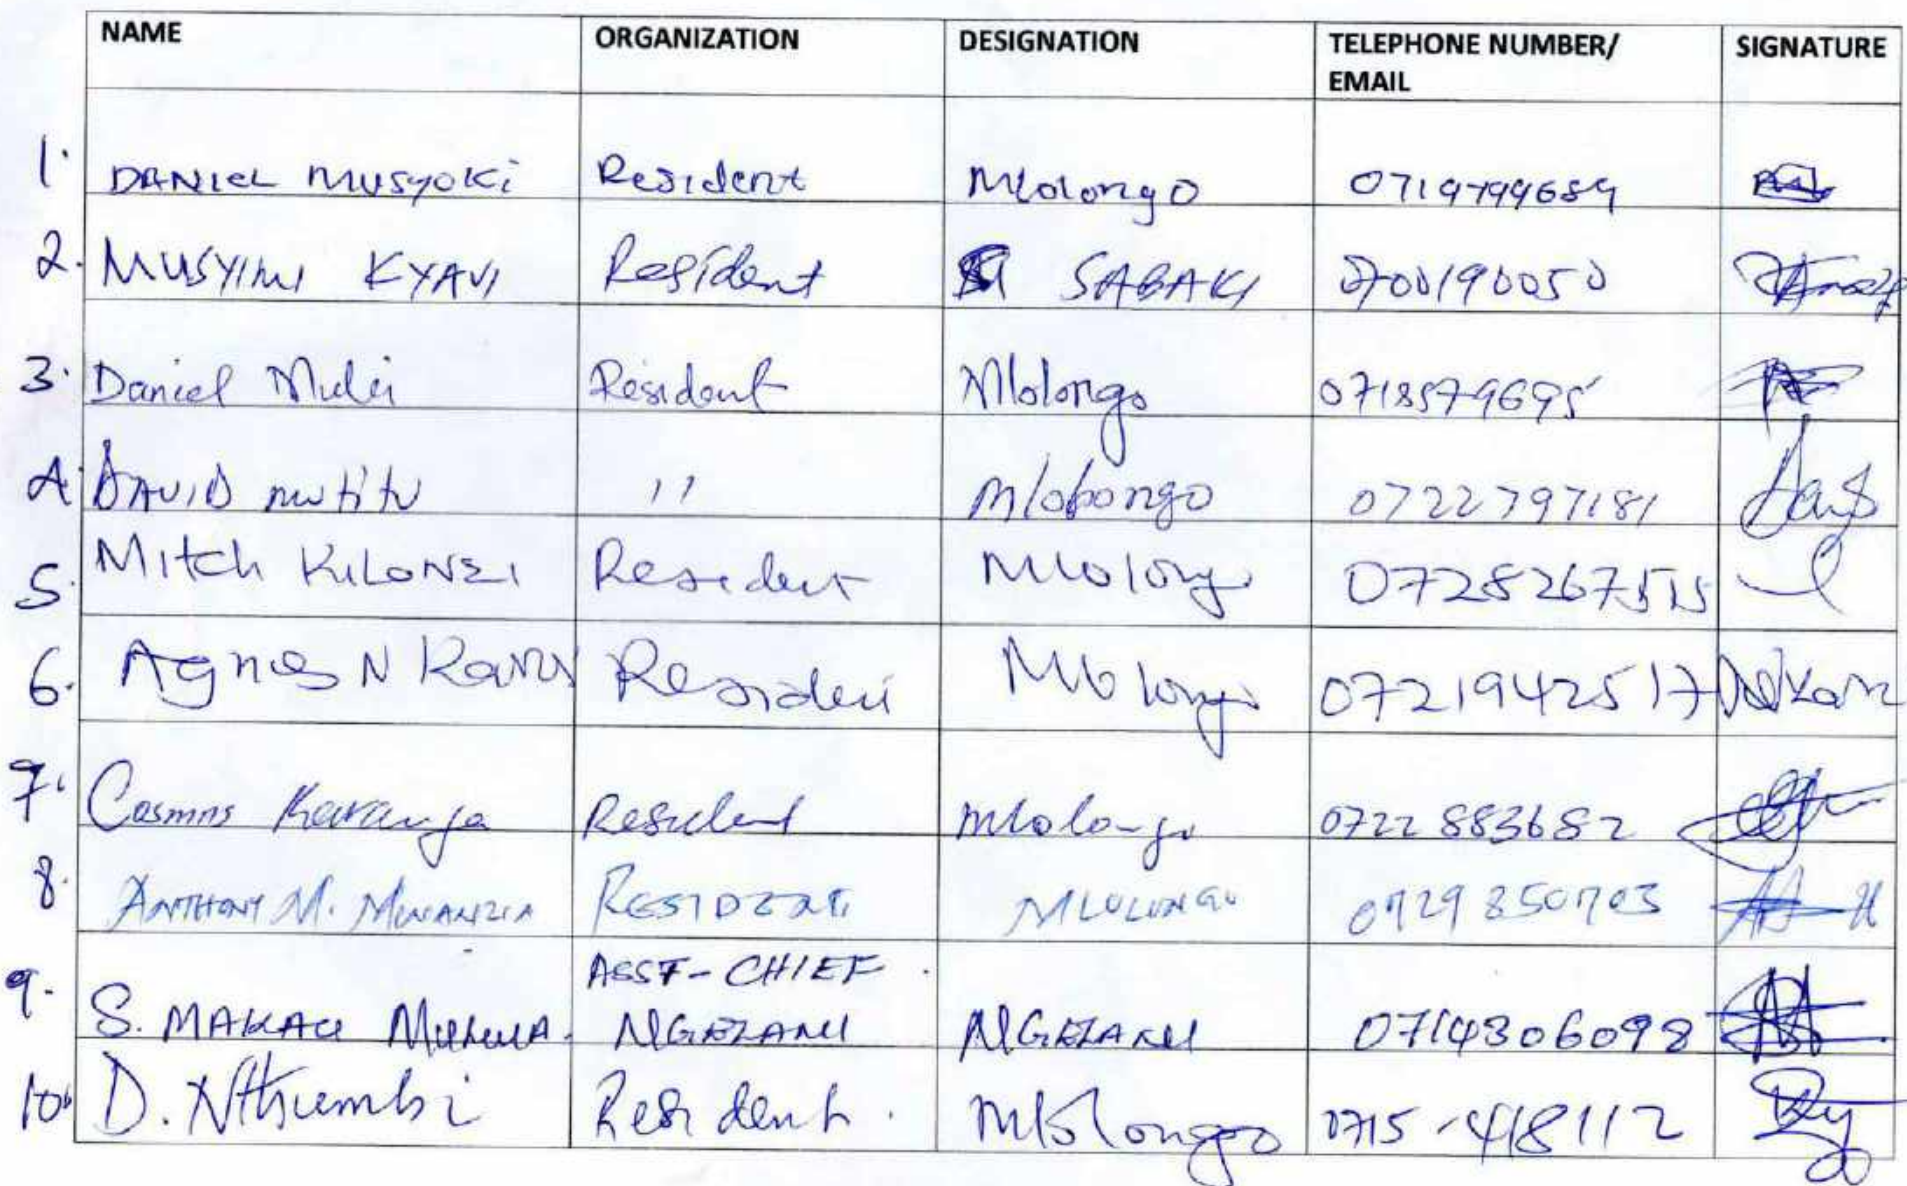 NAME ORGANIZATION DESIGNATION TELEPHONE NUMBER/ EMAIL SIGNATURE
1. DANIEL MUSYOKI Resident Mlolongo 0719799689
2. MUSYIMI KYAVI Resident SABAKI 0700190050
3. Daniel Mulei Resident Mlolongo 0718579695
4. DAVID mutitu 11 mlolongo 0722797181
5. Mitch KILONZI Resident Mlolongo 0728267515
6. Agnes N Resident Mlolongo 0721942517
7. Cosmas Karanja Resident mlolongo 0722 883682
8. ANTHONY M. RESIDENT MLOLONGO 0729 850703
ASST-CHIEF
9. S. MAKAU NGELANI NGELANI 0714306098
10. D. Nthumbi Resident. Mlolongo 0715-418112